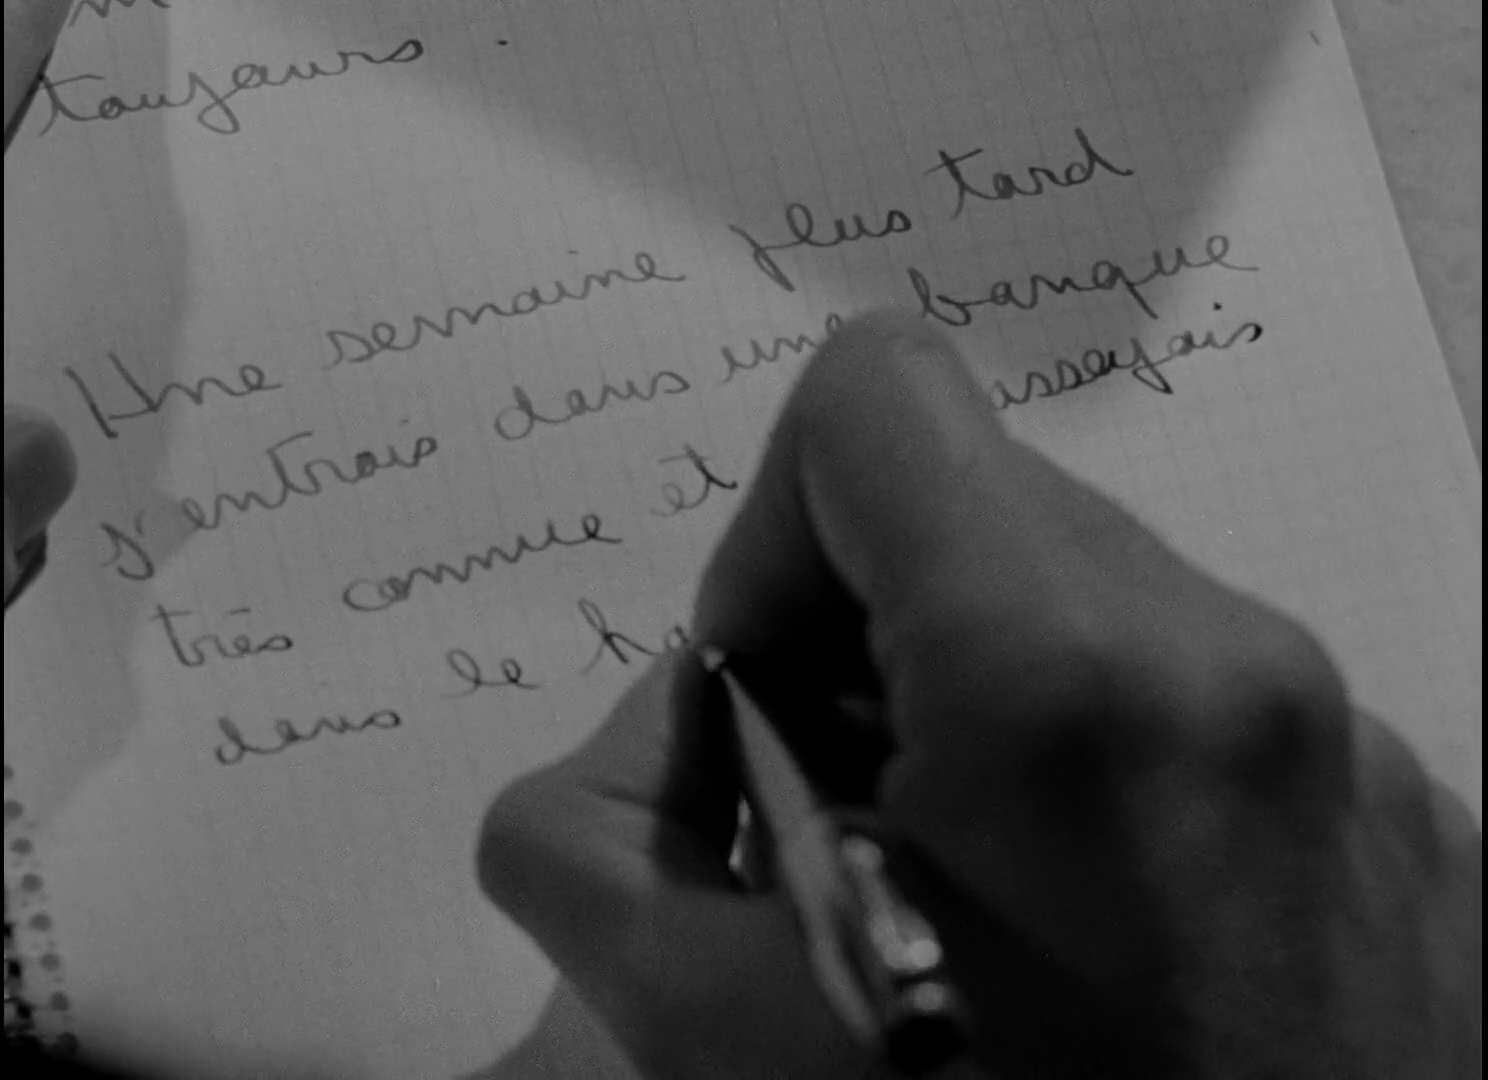 toujours.
Une semaine plus tard
j'entrais dans une banque
très connue et asseyais
dans le ha